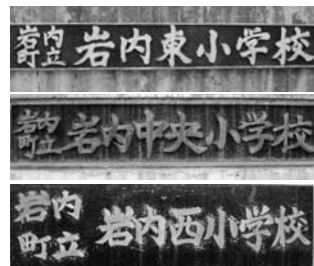 岩内町立 岩内東小学校
岩内町立 岩内中央小学校
岩内町立 岩内西小学校